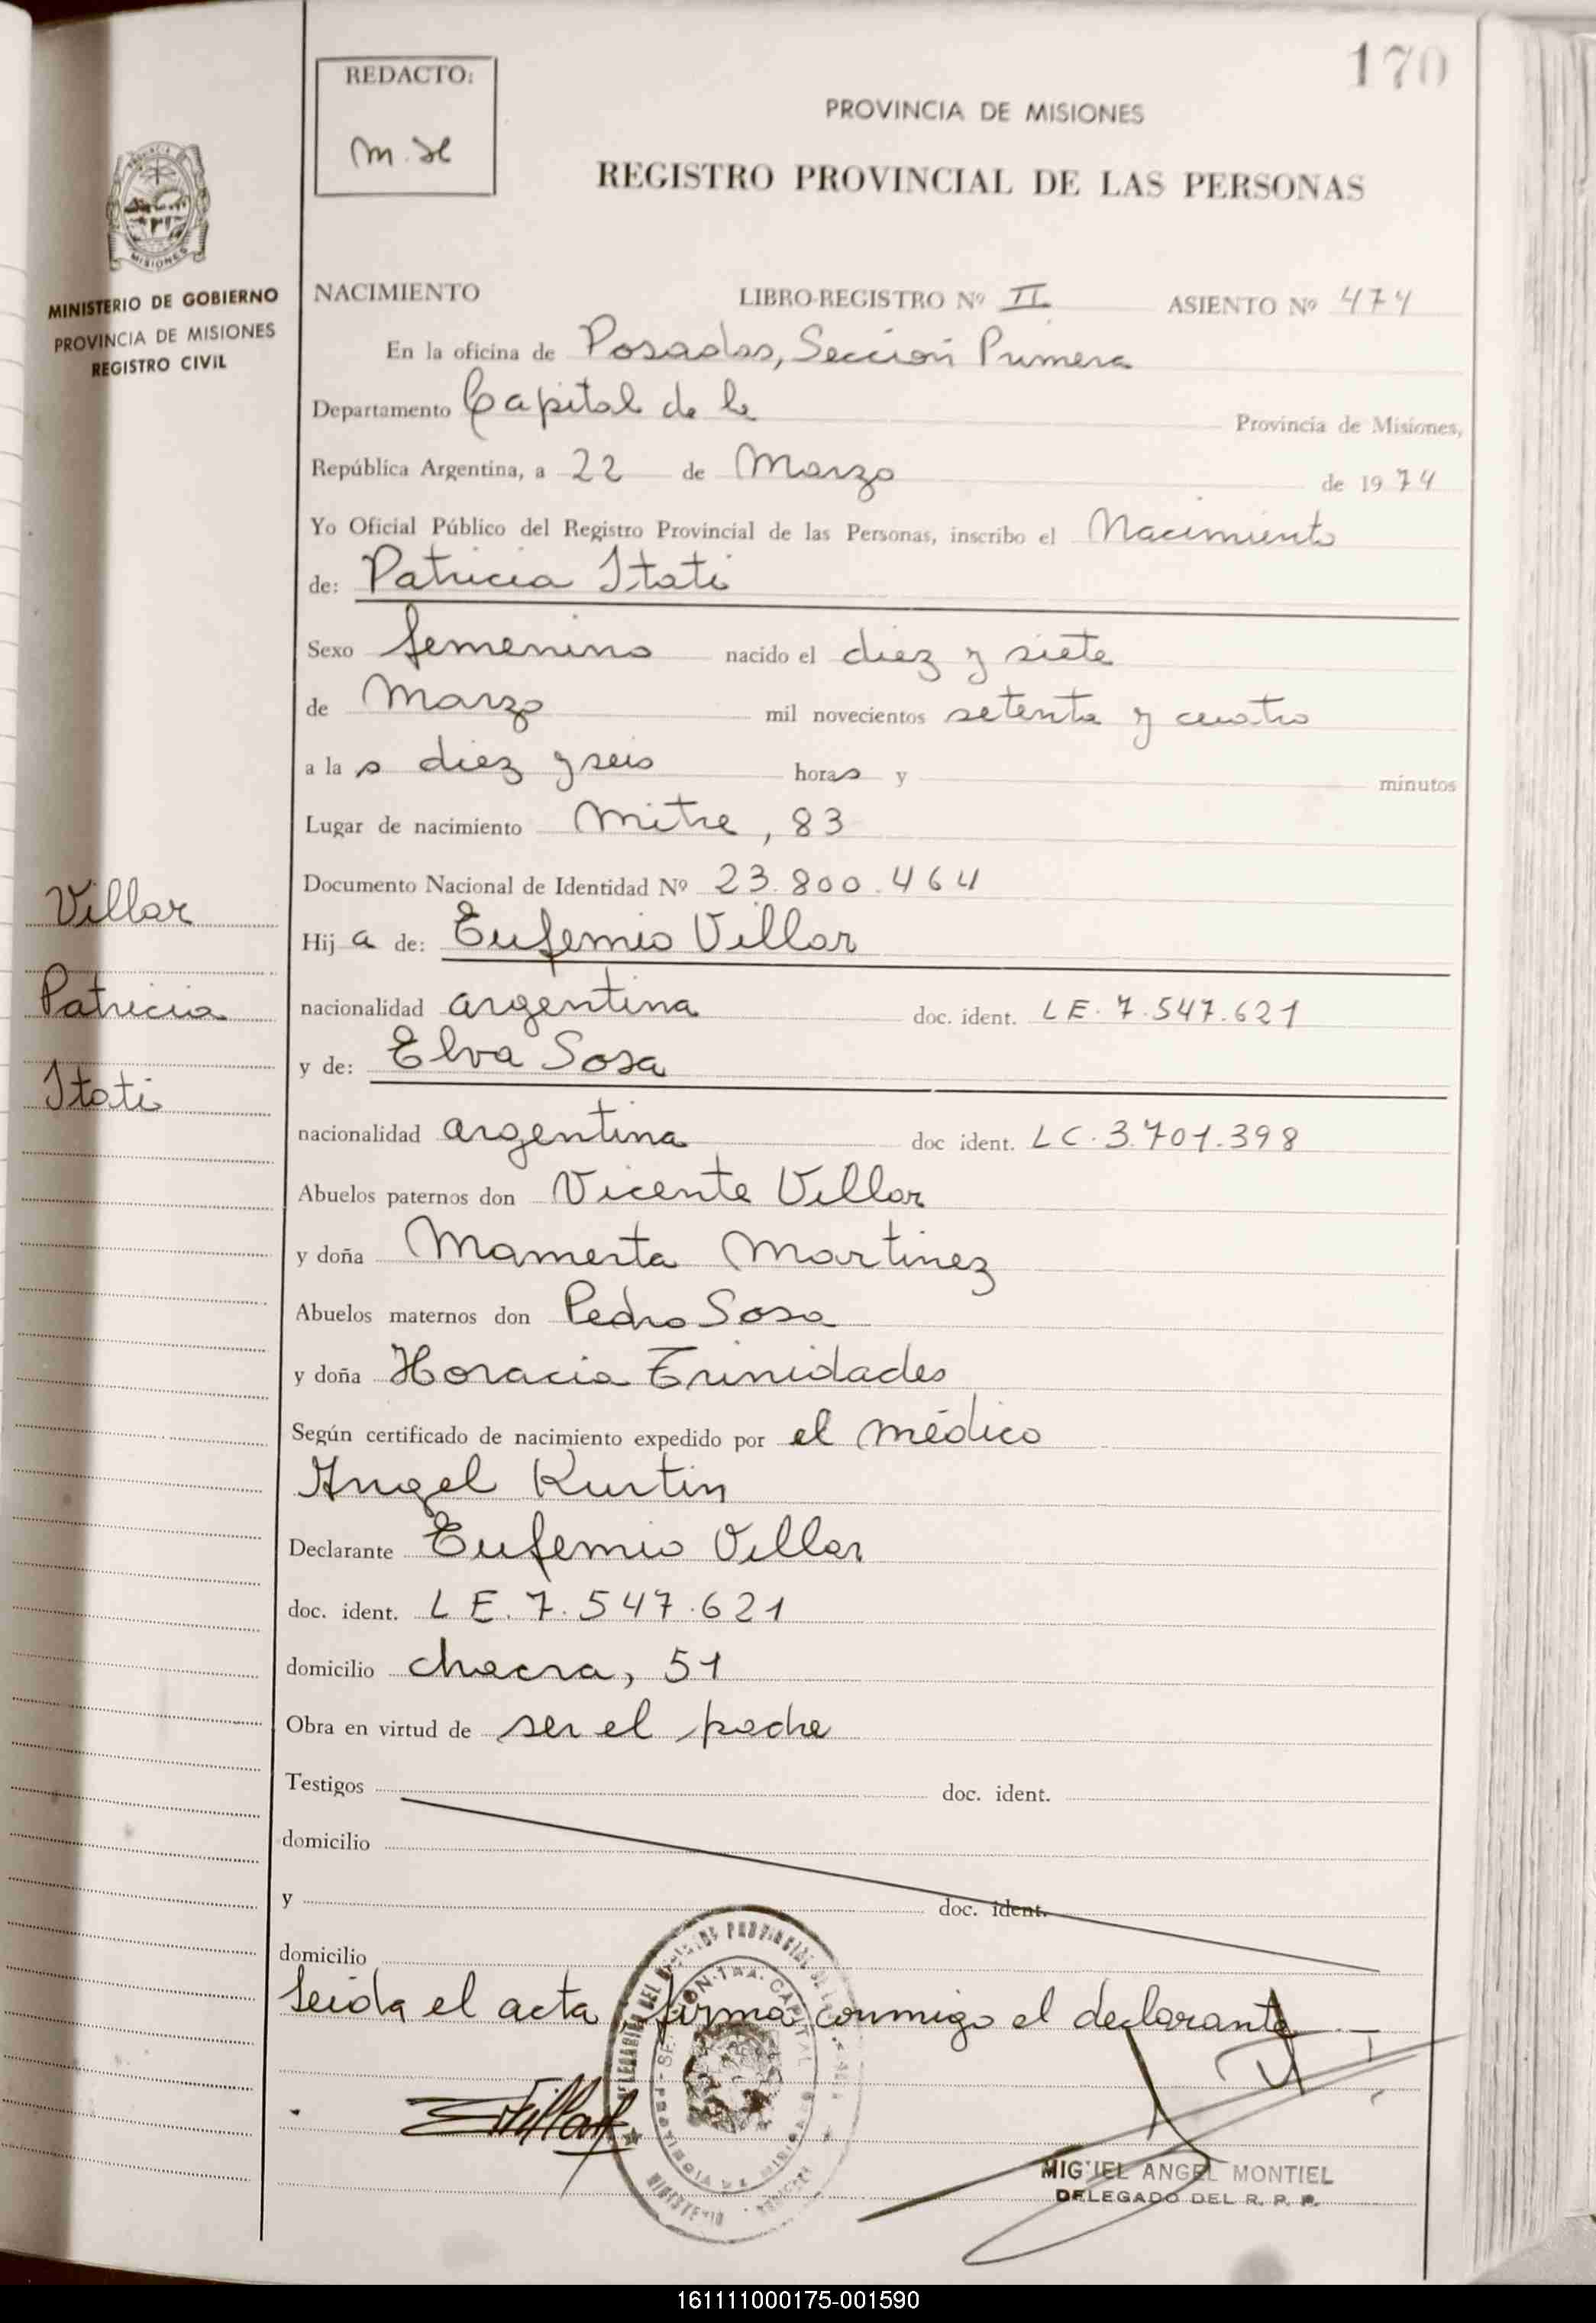 170
REDACTO:
PROVINCIA DE MISIONES
REGISTRO PROVINCIAL DE LAS PERSONAS
MISIONES
MINISTERIO DE GOBIERNO
PROVINCIA DE MISIONES
REGISTRO CIVIL
NACIMIENTO LIBRO-REGISTRO Nº II ASIENTO Nº 474
En la oficina de Posadas, Sección Primera
Departamento Capital de la Provincia de Misiones,
República Argentina, a 22 de Marzo de 1974
Yo Oficial Público del Registro Provincial de las Personas, inscribo el Nacimiento
de: Patricia Itati
Sexo femenino nacido el diez y siete
de Marzo mil novecientos setenta y cuatro
a la s diez y seis horas y minutos
Lugar de nacimiento Mitre, 83
Documento Nacional de Identidad Nº 23.800.464
Villar
Patricia
Itati
Hij a de: Eufemio Villar
nacionalidad argentina doc. ident. LE. 7.547.621
y de: Elva Sosa
nacionalidad argentina doc ident. LC. 3.701.398
Abuelos paternos don Vicente Villar
y doña Mamerta Martinez
Abuelos maternos don Pedro Sosa
y doña Horacia Trinidades
Según certificado de nacimiento expedido por el médico
Angel Kurtin
Declarante Eufemio Villar
doc. ident. LE. 7.547.621
domicilio chacra, 51
Obra en virtud de ser el padre
Testigos doc. ident.
domicilio
y doc. ident.
domicilio
Leida el acta firma conmigo el declarante
EVillar
MIGUEL ANGEL MONTIEL
DELEGADO DEL R. P. P.
161111000175-001590